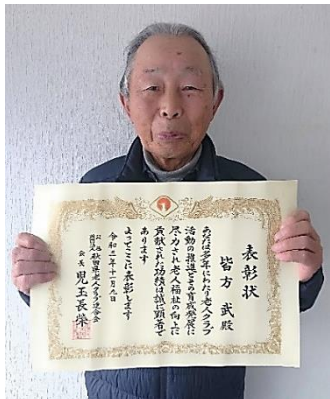 表彰状
皆方 武殿
あなたは多年にわたり老人クラブ
活動の推進とその育成発展に
尽力され老人福祉の向上に
貢献された功績は誠に顕著で
あります
よってここに表彰します
令和二年十一月九日
秋田県老人クラブ連合会
会長 児玉長榮